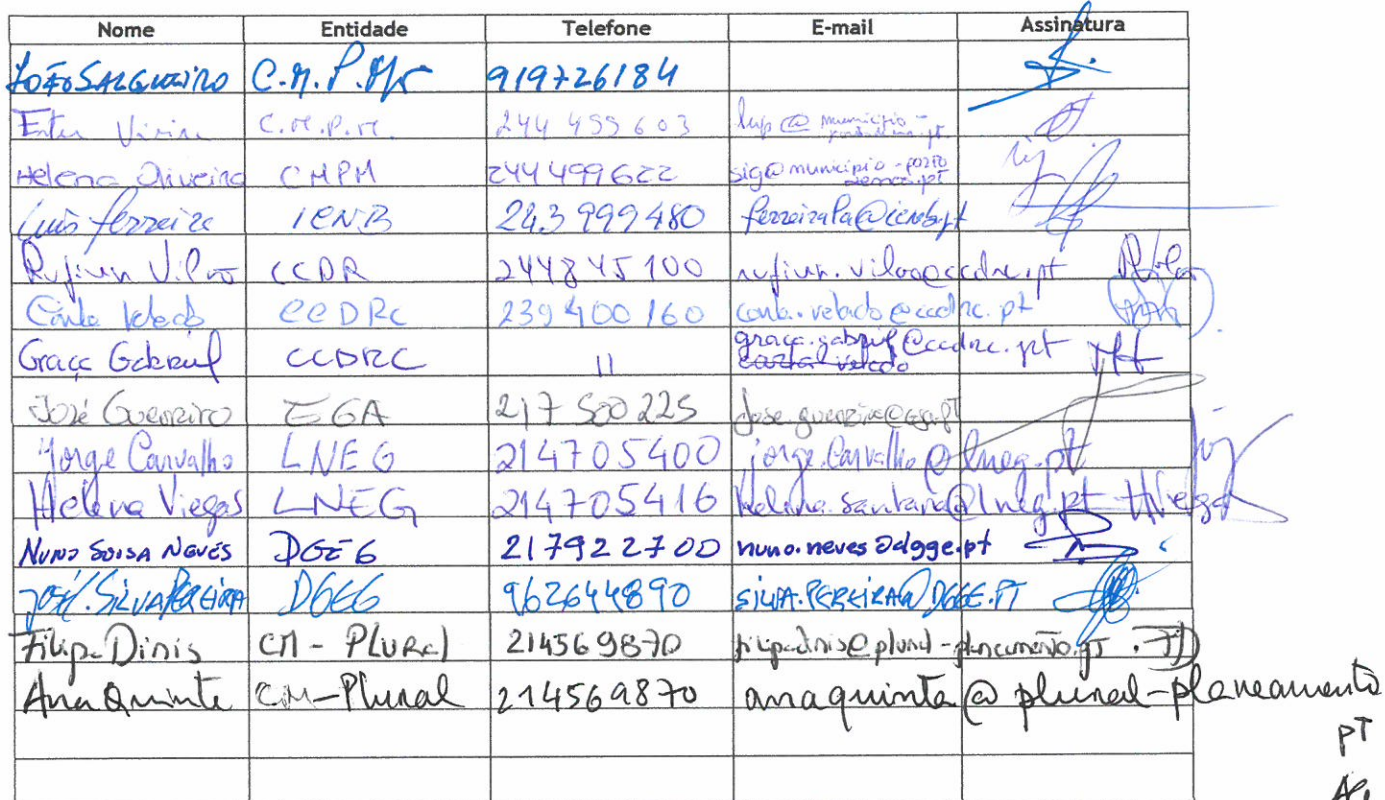 Nome Entidade Telefone E-mail Assinatura
João Salgueiro C.M.P.M 919726184
C.M.P.M. 244 499 603 @ municipio-
Helena Oliveira CMPM 244499622 sig@municipio-porto
demos.pt
Luís Ferreira ICNB 243 999 480
Rufino Vilão CCDR 244845100
Carla Velado CCDRC 239 400 160 carla.velado@ccdrc.pt
Graça Gabriel CCDRC 11 graca.gabriel@ccdrc.pt
carla velado
José Guerreiro EGA 217 500 225
Jorge Carvalho LNEG 214705400 jorge.carvalho@lneg.pt
Helena Viegas LNEG 214705416 helena.santana@lneg.pt HViegas
Nuno Sousa Neves DGEG 217922700 nuno.neves@dgge.pt
José Silva Pereira DGEG 962644890 SILVA.PEREIRA@DGGE.PT
Filipa Dinis CM - Plural 214569870 filipadinis@plural-planeamento.pt FD
Ana Quinta CM-Plural 214569870 anaquinta@plural-planeamento
PT